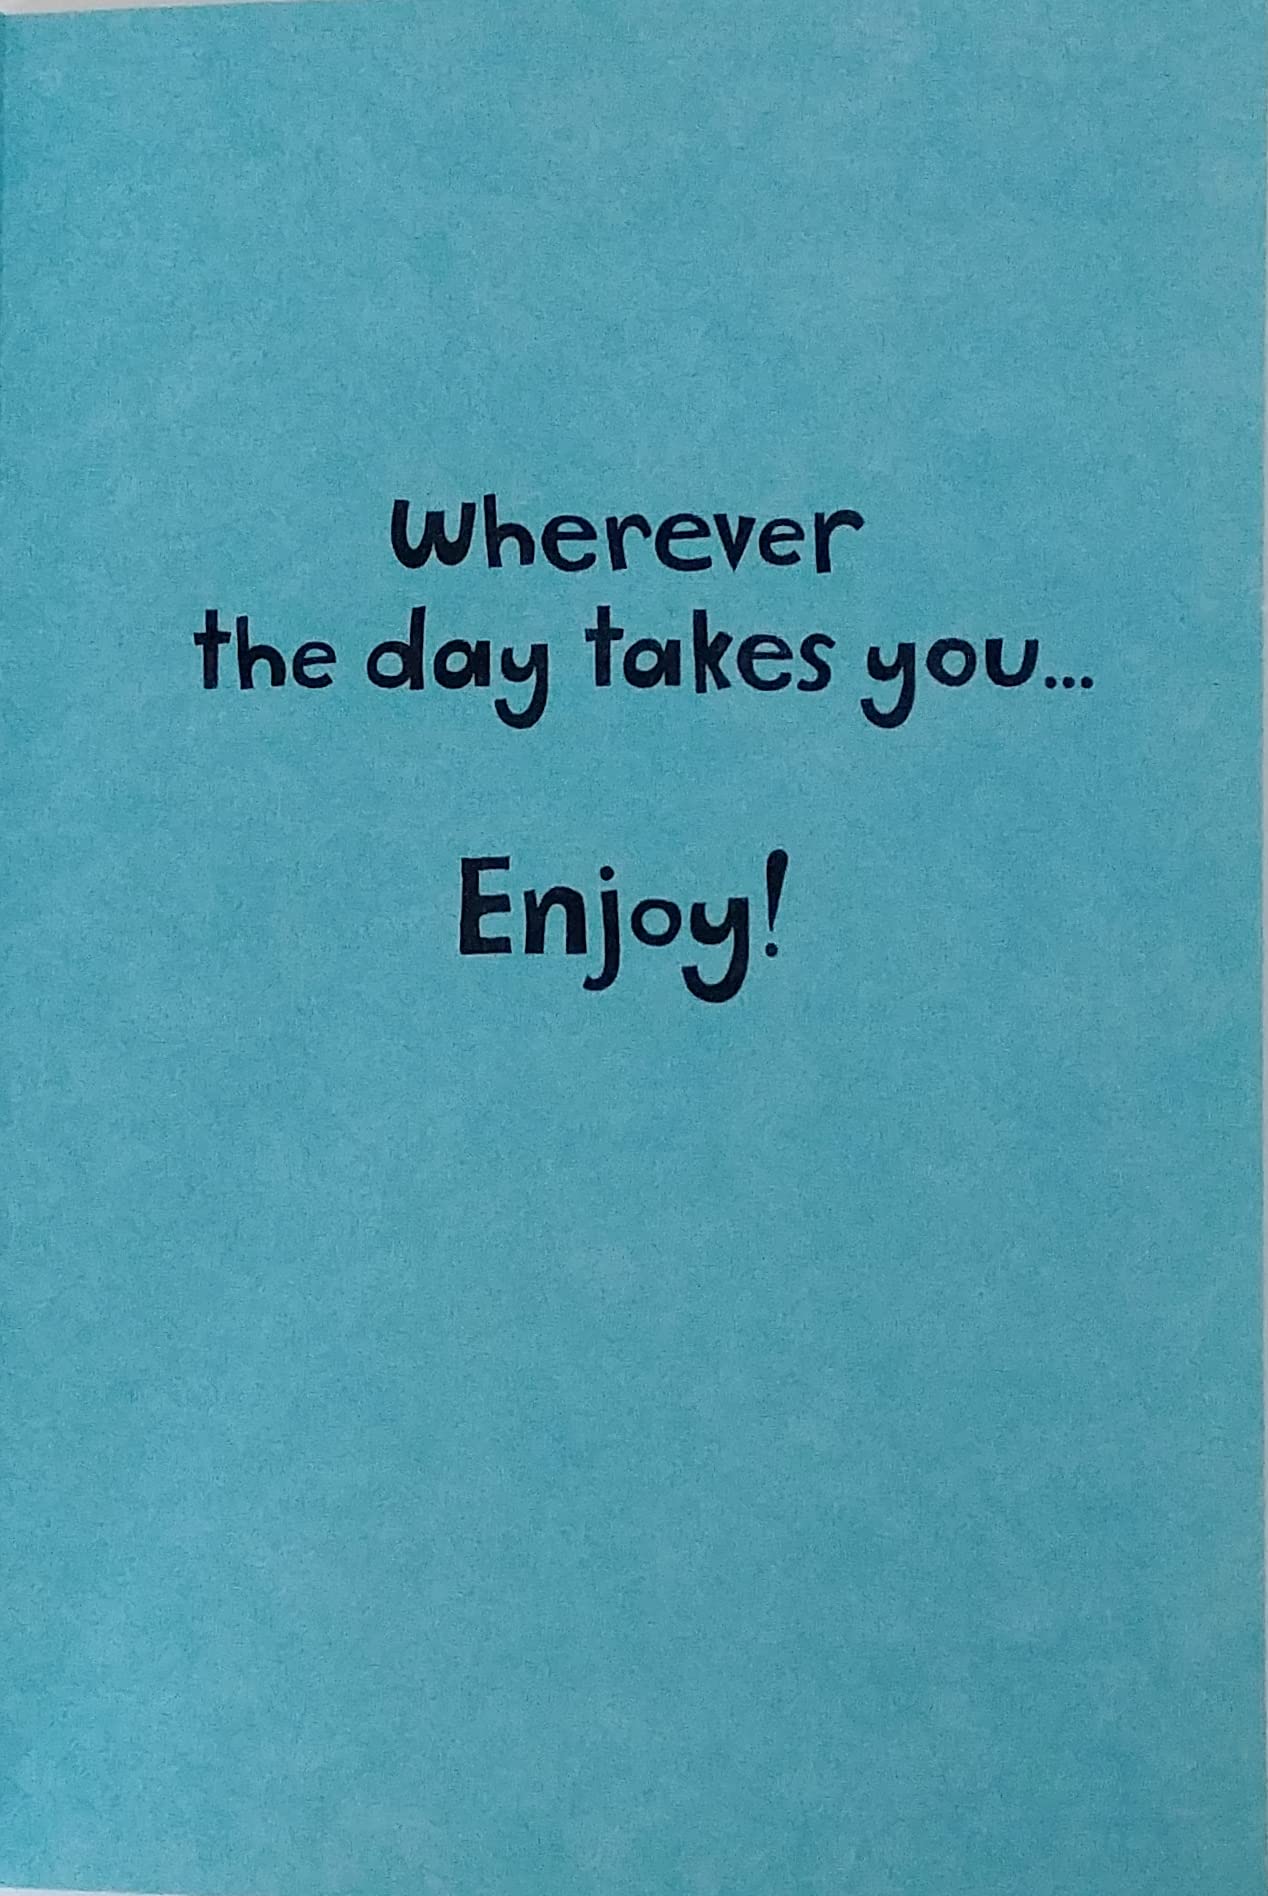 Wherever
the day takes you...
Enjoy!